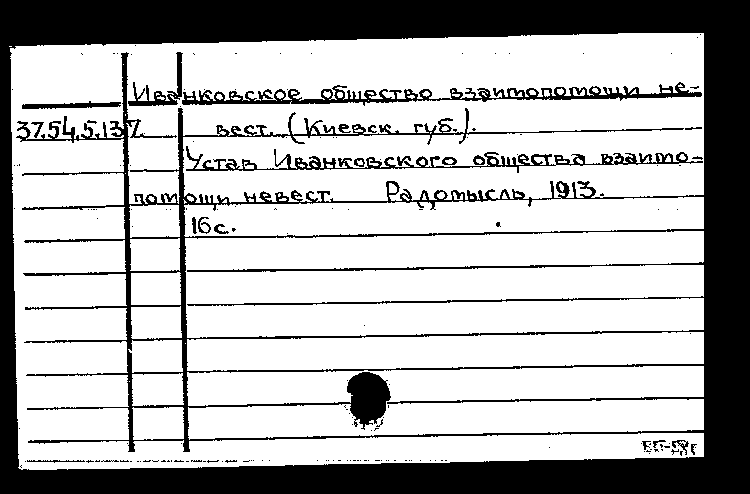 Иванковское общество взаимопомощи не-
37.54.5.137. вест. (Киевск. губ.).
Устав Иванковского общества взаимо=
помощи невест. Радомысль, 1913.
16с.